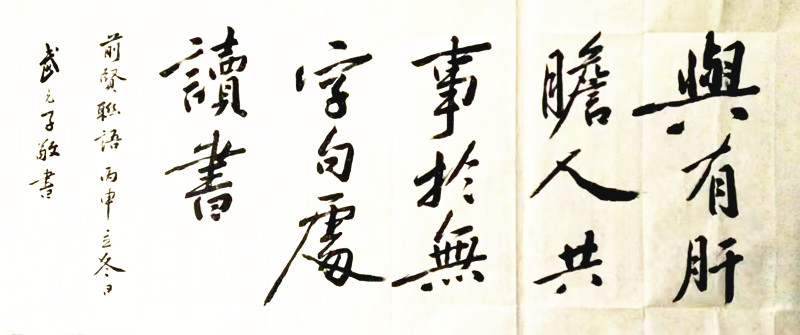 與有肝
膽人共
事於無
字白處
讀書
前賢聯語 丙申立冬日
武元子敬書